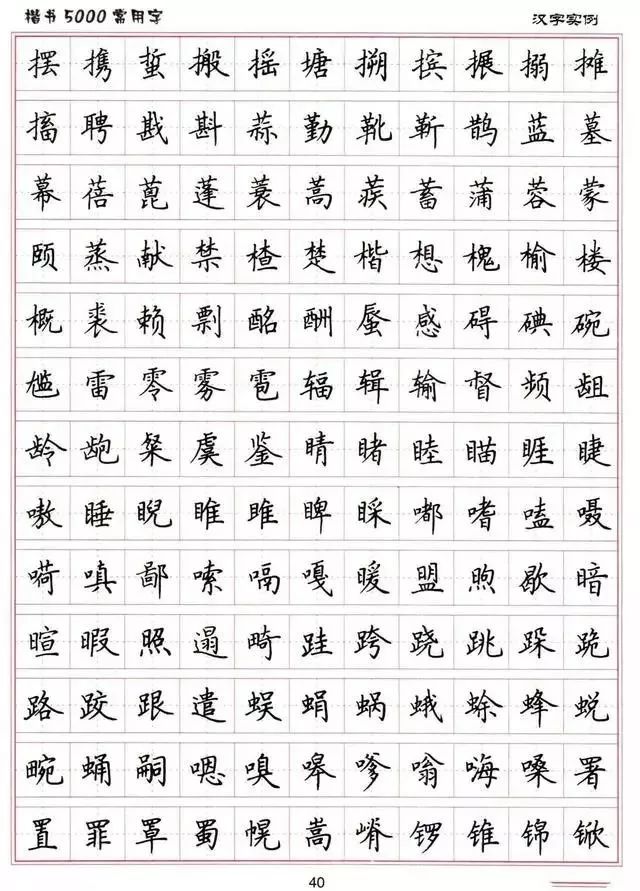 楷书5000常用字 汉字实例
摆携蜇搬摇塘搠摈搌搦摊
搐聘戡斟蒜勤靴靳鹊蓝墓
幕蓓蓖蓬蓑蒿蒺蓄蒲蓉蒙
颐蒸献禁楂楚楷想槐榆楼
概裘赖剽酩酬蜃感碍碘碗
尴雷零雾雹辐辑输督频龃
龄龅粲虞鉴睛睹睦瞄睚睫
嗷睡睨睢雎睥睬嘟嗜嗑嗫
嗬嗔鄙嗦嗝嘎暖盟煦歇暗
暄暇照遢畸跬跨跷跳跺跪
路跤跟遣蜈蜎蜗蛾蜍蜂蜕
畹蛹嗣嗯嗅嗥嗲嗡嗨嗓署
置罪罩蜀幌嵩嵴锣锥锦锨
40